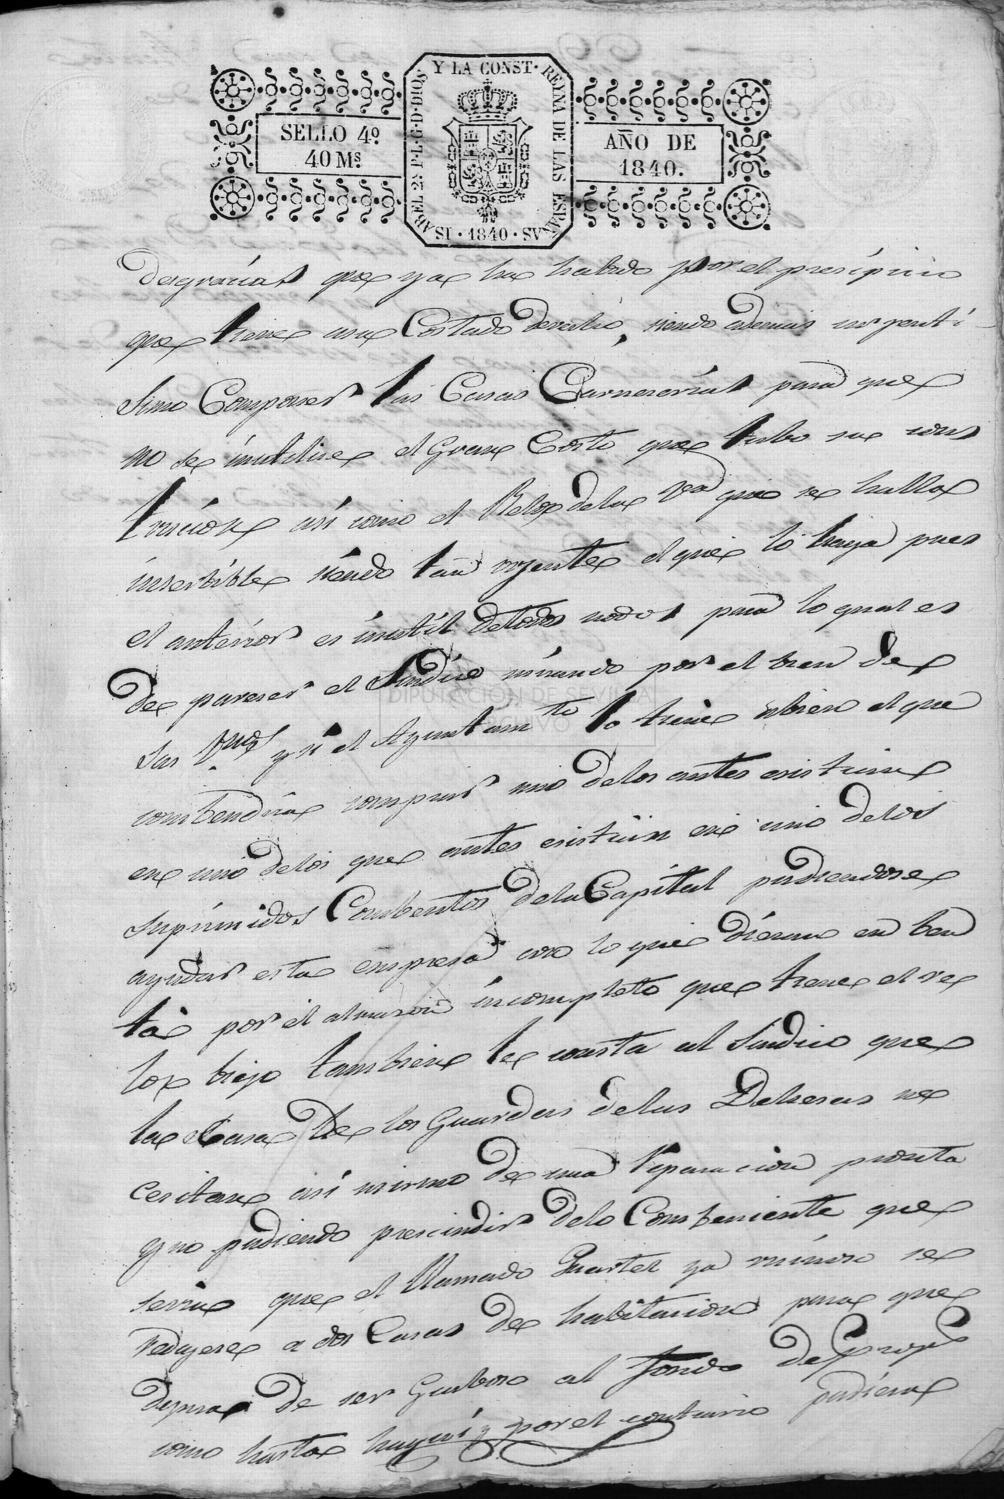 Y LA CONST· REYNA DE LAS ESPAÑAS · 1840 · ISABEL 2ª P·L·G·D·DIOS
SELLO 4º
40 Mˢ
AÑO DE
1840.
desgracias que ya ha habido por el presipicio
que tiene un Costado derecho, siendo ademas urgenti-
simo Componer las Casas Carneserias para que
no se inutilise el Gran Costo que tubo su cons
trucion asi como el Relox dela Vª que se halla
inserbible siendo tan urjente el que lo haya pues
el anterior es inutil detodos modos para lo qual es
de pareser el Sindico mirando por el bien de
sus Vnos y si el Ayuntamto lo tiene abien el que
combendria comprar uno delos antes existian
en uno delos que antes existian en uno delos
suprimidos Combentos dela Capital pudiendose
ayudar esta empresa con lo que dieran en ben
ta por el almason incompleto que tiene el re
lox biejo tambien le consta al Sindico que
la Casa de los Guardas delas Dehesas ne
cesitan asi mismo de una reparacion pronta
y no pudiendo prescindir delo Combeniente que
seria que el llamado Quartel ya ruinoso se
redugese a dos Casas de habitacion para que
dejara de ser Gravoso al fondo de Propˢ
como hasta hay y por el contrario pudiera
DIPUTACIÓN DE SEVILLA
ARCHIVO